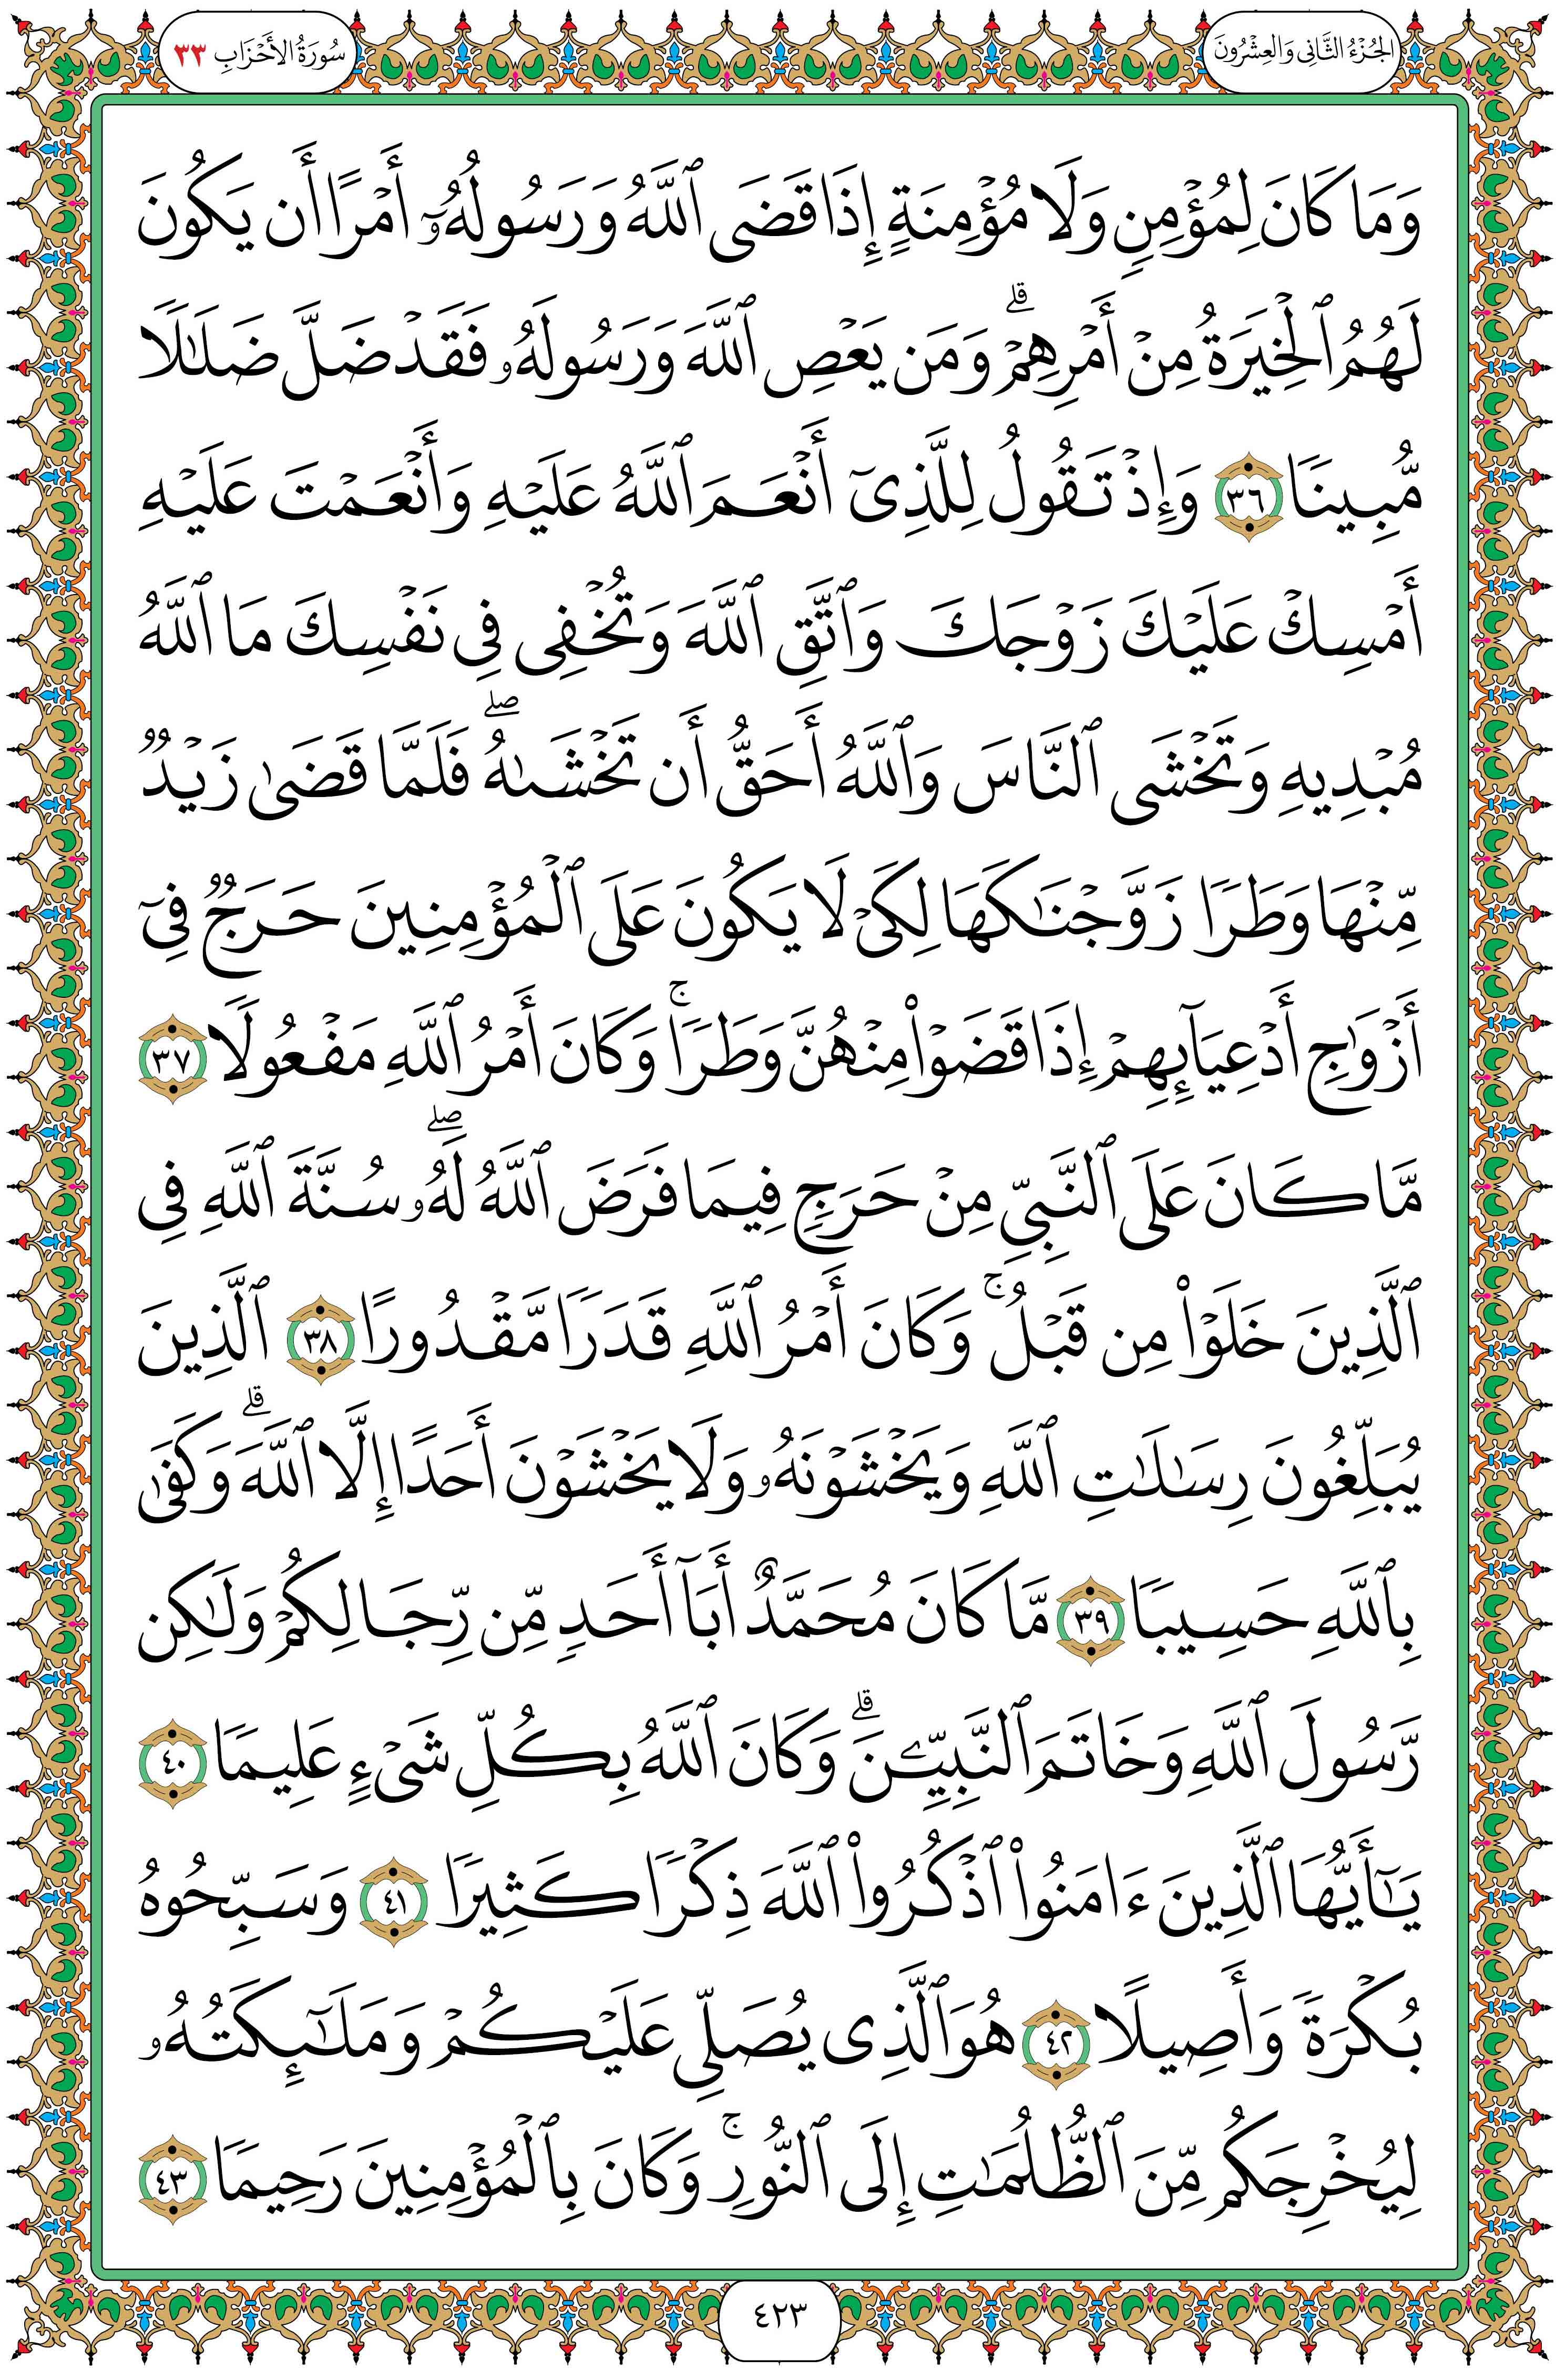 الجُزْءُ الثَّانِي وَالعِشْرُونَ
سُورَةُ الأَحْزَابِ ٣٣
وَمَا كَانَ لِمُؤْمِنٍ وَلَا مُؤْمِنَةٍ إِذَا قَضَى ٱللَّهُ وَرَسُولُهُۥٓ أَمْرًا أَن يَكُونَ
لَهُمُ ٱلْخِيَرَةُ مِنْ أَمْرِهِمْ ۗ وَمَن يَعْصِ ٱللَّهَ وَرَسُولَهُۥ فَقَدْ ضَلَّ ضَلَٰلًا
مُّبِينًا ٣٦ وَإِذْ تَقُولُ لِلَّذِىٓ أَنْعَمَ ٱللَّهُ عَلَيْهِ وَأَنْعَمْتَ عَلَيْهِ
أَمْسِكْ عَلَيْكَ زَوْجَكَ وَٱتَّقِ ٱللَّهَ وَتُخْفِى فِى نَفْسِكَ مَا ٱللَّهُ
مُبْدِيهِ وَتَخْشَى ٱلنَّاسَ وَٱللَّهُ أَحَقُّ أَن تَخْشَىٰهُ ۖ فَلَمَّا قَضَىٰ زَيْدٌ
مِّنْهَا وَطَرًا زَوَّجْنَٰكَهَا لِكَىْ لَا يَكُونَ عَلَى ٱلْمُؤْمِنِينَ حَرَجٌ فِىٓ
أَزْوَٰجِ أَدْعِيَآئِهِمْ إِذَا قَضَوْا۟ مِنْهُنَّ وَطَرًا ۚ وَكَانَ أَمْرُ ٱللَّهِ مَفْعُولًا ٣٧
مَّا كَانَ عَلَى ٱلنَّبِىِّ مِنْ حَرَجٍ فِيمَا فَرَضَ ٱللَّهُ لَهُۥ ۖ سُنَّةَ ٱللَّهِ فِى
ٱلَّذِينَ خَلَوْا۟ مِن قَبْلُ ۚ وَكَانَ أَمْرُ ٱللَّهِ قَدَرًا مَّقْدُورًا ٣٨ ٱلَّذِينَ
يُبَلِّغُونَ رِسَٰلَٰتِ ٱللَّهِ وَيَخْشَوْنَهُۥ وَلَا يَخْشَوْنَ أَحَدًا إِلَّا ٱللَّهَ ۗ وَكَفَىٰ
بِٱللَّهِ حَسِيبًا ٣٩ مَّا كَانَ مُحَمَّدٌ أَبَآ أَحَدٍ مِّن رِّجَالِكُمْ وَلَٰكِن
رَّسُولَ ٱللَّهِ وَخَاتَمَ ٱلنَّبِيِّـۧنَ ۗ وَكَانَ ٱللَّهُ بِكُلِّ شَىْءٍ عَلِيمًا ٤٠
يَٰٓأَيُّهَا ٱلَّذِينَ ءَامَنُوا۟ ٱذْكُرُوا۟ ٱللَّهَ ذِكْرًا كَثِيرًا ٤١ وَسَبِّحُوهُ
بُكْرَةً وَأَصِيلًا ٤٢ هُوَ ٱلَّذِى يُصَلِّى عَلَيْكُمْ وَمَلَٰٓئِكَتُهُۥ
لِيُخْرِجَكُم مِّنَ ٱلظُّلُمَٰتِ إِلَى ٱلنُّورِ ۚ وَكَانَ بِٱلْمُؤْمِنِينَ رَحِيمًا ٤٣
٤٢٣